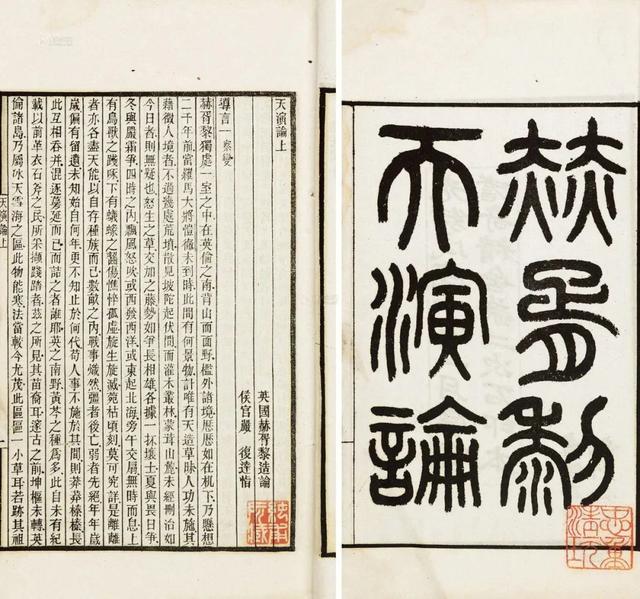 赫胥黎
天演論
天演論上
英國赫胥黎造論
侯官嚴 復達恉
導言一察變
赫胥黎獨處一室之中在英倫之南背山而面野檻外諸境歷歷如在机下乃懸想
二千年前當羅馬大將愷徹未到時此間有何景物計唯有天造草昧人功未施其
藉徵人境者不過幾處荒墳散見坡陀起伏間而灌木叢林蒙茸山麓未經刪治如
今日者則無疑也怒生之草交加之藤勢如爭長相雄各據一抔壤土夏與畏日爭
冬與嚴霜爭四時之內飄風怒吹或西發西洋或東起北海旁午交扇無時而息上
有鳥獸之踐啄下有蟻蝝之齧傷憔悴孤虛旋生旋滅菀枯頃刻莫可究詳是離離
者亦各盡天能以自存種族而已數畝之內戰事熾然彊者後亡弱者先絕年年
歲偏有留遺未知始自何年更不知止於何代苟人事不施於其間則莽莽榛榛長
此互相吞并混逐蔓延而已而詰之者誰耶英之南野黃芩之種爲多此自未有紀
載以前革衣石斧之民所采擷踐踏者茲之所見其苗裔耳邃古之前坤樞未轉英
倫諸島乃屬冰天雪海之區此物能寒法當較今尤茂此區區一小草耳若跡其祖
天演論上